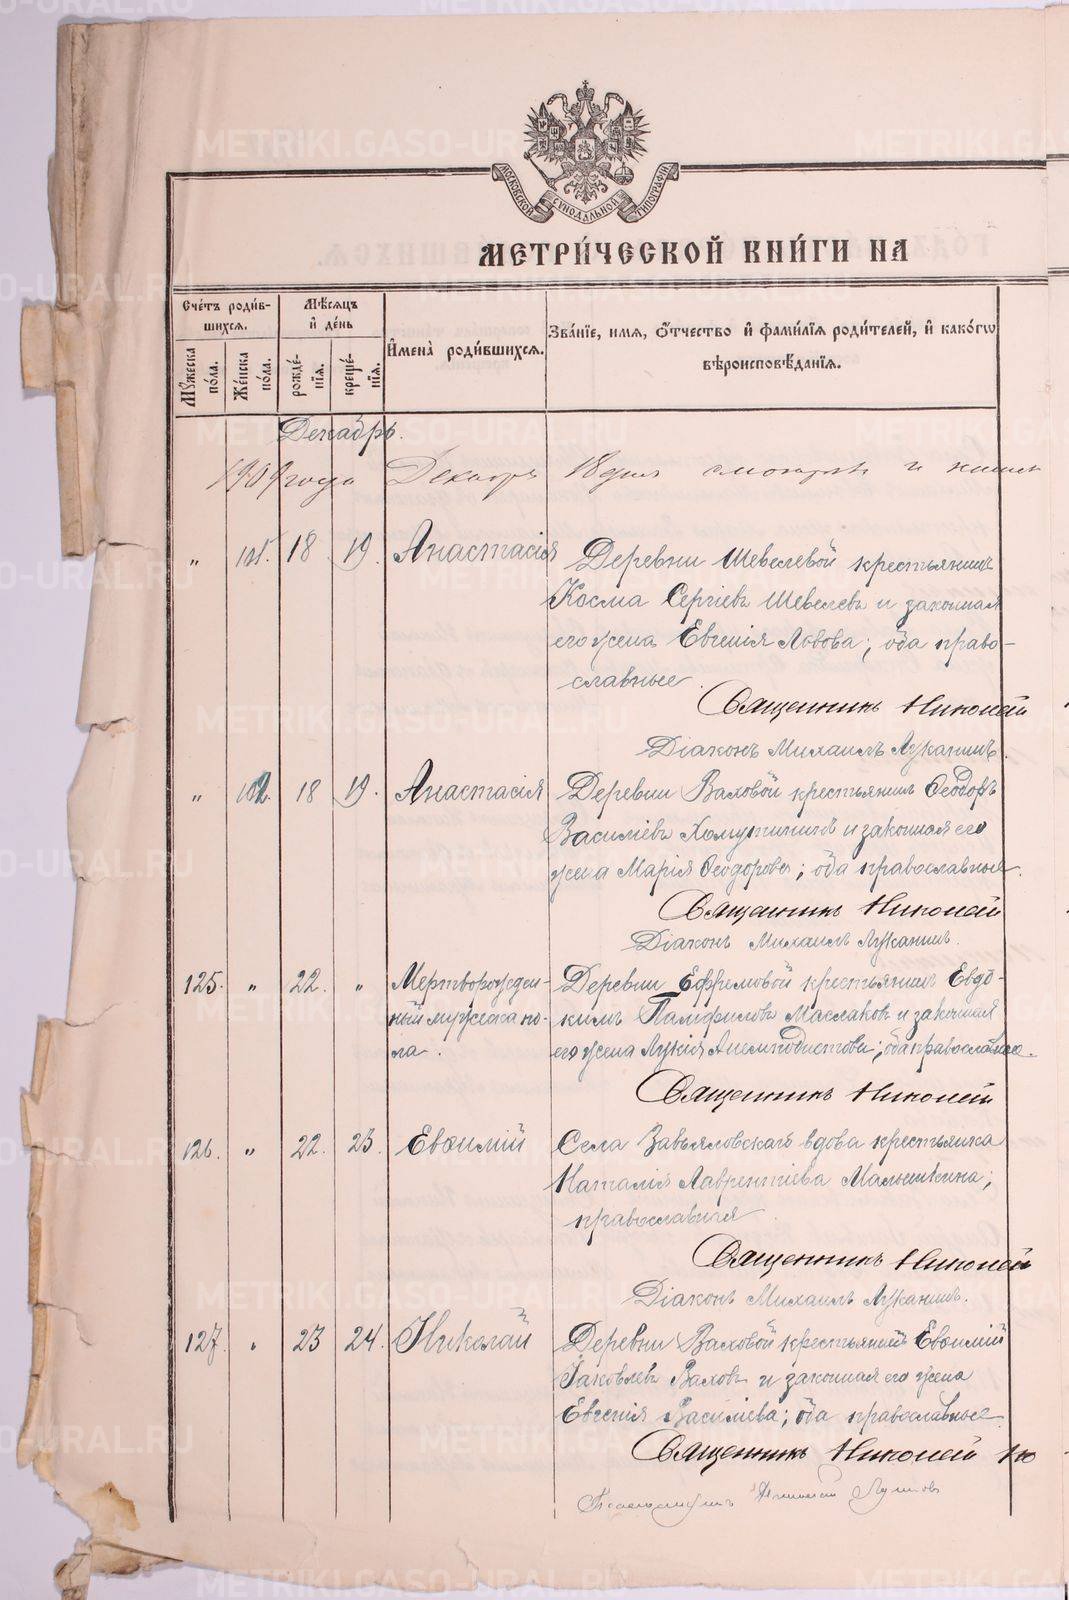 МОСКОВСКОЙ СѴНОДАЛЬНОЙ ТИПОГРАФІИ
МЕТРИ́ЧЕСКОЙ КНИ́ГИ НА
Счетъ родив-
шихся.
Мѣсяцъ
и день
Имена родившихся.
Званіе, имя, отчество и фамилія родителей, и какого
вѣроисповѣданія.
Мужеска пола.
Женска пола.
рожденія.
крещенія.
Декабрь.
1909 года Декабря 18 дня смотрѣн и
„ 101. 18 19. Анастасія Деревни Шевелевой крестьянинъ
Косма Сергіевъ Шевелевъ и законная
его жена Евгенія Львова; оба право-
славные.
Священникъ Николай
Діаконъ Михаилъ Луканинъ.
„ 102. 18 19. Анастасія Деревни Ваховой крестьянинъ Ѳеодоръ
Василіевъ Хомутининъ и законная его
жена Марія Ѳеодорова; оба православные.
Священникъ Николай
Діаконъ Михаилъ Луканинъ.
125. „ 22. „ Мертворожден- Деревни Ефремовой крестьянинъ Евдо-
ный мужеска по- кимъ Памфиловъ Маслаковъ и законная
ла. его жена Лукія Анемподистова; оба православные.
Священникъ Николай
126. „ 22. 23. Евѳимій Села Завьяловскаго вдова крестьянка
Наталія Лаврентіева Малышкина;
православная.
Священникъ Николай
Діаконъ Михаилъ Луканинъ.
127. „ 23 24. Николай Деревни Ваховой крестьянинъ Евѳимій
ІаковлевъВаховъ и законная его жена
Евгенія Василіева; оба православные.
Священникъ Николай Кю
Псаломщикъ
METRIKI.GASO-URAL.RU